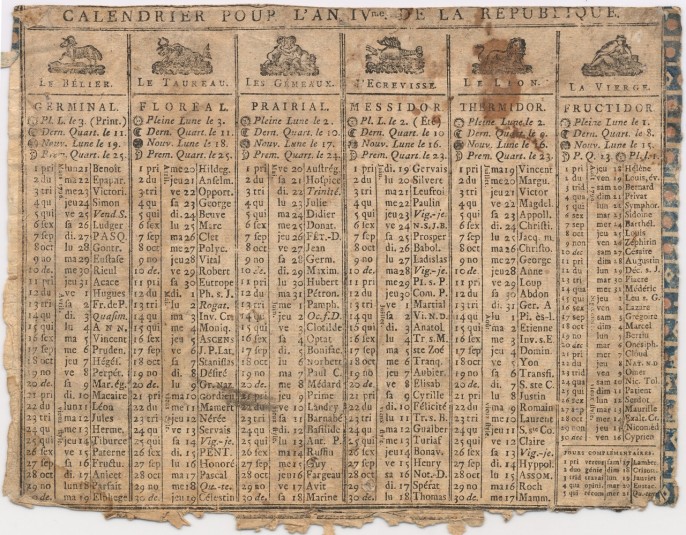 CALENDRIER POUR L'AN IVme. DE LA REPUBLIQUE.
LE BÉLIER.
GERMINAL.
Pl. L. le 3. (Print.)
Dern. Quart. le 11.
Nouv. Lune le 19.
Prem. Quart. le 25.
1 pri lun 21 Benoît
2 du ma 22 Epapar.
3 tri me 23 Victori.
4 qua jeu 24 Simon
5 qui ve 25 Vend S.
6 sex sa 26 Ludger
7 sep di. 27 PASQ.
8 oct lu 28 Gontr.
9 non ma 29 Eustase
10 de. me 30 Rieul
11 pri jeu 31 Acace
12 du ve 1 Hugues
13 tri sa 2 Fr. de P.
14 qua di. 3 Quasim.
15 qui lu 4 ANN.
16 sex ma 5 Vincent
17 sep me 6 Pruden.
18 oct jeu 7 Hégés.
19 no ve 8 Perpét.
20 de. sa 9 Mar. ég.
21 pri di. 10 Macaire
22 du lun 11 Léon
23 tri ma 12 Jules
24 qua me 13 Herme.
25 qui jeu 14 Tiburce
26 sex ve 15 Paterne
27 sep sa 16 Fructu.
28 oct di. 17 Anicet
29 no lun 18 Parfait
30 de. ma 19 Elphege
LE TAUREAU.
FLOREAL.
Pleine Lune le 3.
Dern. Quart. le 11.
Nouv. Lune le 18.
Prem. Quart. le 25.
1 pri me 20 Hildeg.
2 du jeu 21 Anselm.
3 tri ve 22 Opport.
4 qua sa 23 George
5 qui di. 24 Beuve
6 sex lu 25 Marc
7 sep ma 26 Clet
8 oct me 27 Polyc.
9 non jeu 28 Vital
10 de. ve 29 Robert
11 pri sa 30 Europe
12 du di. 1 Ph. s. J.
13 tri lu 2 Rogat.
14 qua ma 3 Inv. Cr.
15 qui me 4 Moniq.
16 sex jeu 5 ASCENS
17 sep ve 6 J. P. Lat.
18 oct sa 7 Stanislas
19 no di. 8 Désiré
20 de. lu 9 Gr. Naz.
21 pri ma 10 Gordien
22 du me 11 Mamert
23 tri jeu 12 Nérée
24 qua ve 13 Servais
25 qui sa 14 Vig.-je.
26 sex di. 15 PENT.
27 sep lu 16 Honoré
28 oct ma 17 Pascal
29 no me 18 Qu.-te.
30 de. jeu 19 Célestin
LES GÉMEAUX.
PRAIRIAL.
Pleine Lune le 2.
Dern. Quart. le 10.
Nouv. Lune le 17.
Prem. Quart. le 24.
1 pri ve 20 Austrég.
2 du sa 21 Hospice
3 tri di. 22 Trinité.
4 qua lu 23 Julie
5 qui ma 24 Didier
6 sex me 25 Donat.
7 sep jeu 26 FÊT.-D.
8 oct ve 27 Jean
9 non sa 28 Germ.
10 de. di. 29 Maxim.
11 pri lu 30 Hubert
12 du ma 31 Pétron.
13 tri me 1 Pamph.
14 qua jeu 2 Oc. f. D.
15 qui ve 3 Clotilde
16 sex sa 4 Optat
17 sep di. 5 Boniface.
18 oct lu 6 Norbert
19 no ma 7 Paul C.
20 de. me 8 Médard
21 pri jeu 9 Prime
22 du ve 10 Landry
23 tri sa 11 Barnabé
24 qua di. 12 Basilide
25 qui lu 13 Ant. P.
26 sex ma 14 Ruffin
27 sep me 15 Guy
28 oct jeu 16 Fargeau
29 no ve 17 Avit
30 de. sa 18 Marine
L'ECREVISSE
MESSIDOR
Pl. L. le 2. (Été)
Dern. Quart. le 10
Nouv. Lune le 16
Prem. Quart. le 23
1 pri di. 19 Gervais
2 du lu 20 Silvere
3 tri ma 21 Leufroi
4 qua me 22 Paulin
5 qui jeu 23 Vig.-je
6 sex ve 24 N. S. J. B.
7 sep sa 25 Prosper
8 oct di. 26 Babol.
9 non lu 27 Ladislas
10 de. ma 28 Vig.-je.
11 pri me 29 Pi. s. P.
12 du jeu 30 Com. P.
13 tri ve 1 Martial
14 qua sa 2 Vi. N. D.
15 qui di. 3 Anatol.
16 sex lu 4 Tr s. M.
17 sep ma 5 ste Zoé
18 oct me 6 Tranq.
19 no jeu 7 Aubier.
20 de. ve 8 Elisab
21 pri sa 9 Cyrille
22 du di. 10 Félicité
23 tri lu 11 Tr. s. B.
24 qua ma 12 Gualber
25 qui me 13 Turiaf
26 sex jeu 14 Bonav.
27 sep ve 15 Henry
28 oct sa 16 Not.-D.
29 no di. 17 Spérat
30 de. lu 18 Thomas
LE LION.
THERMIDOR.
Pleine Lune le 2.
Dern. Quart. le 9.
Nouv. Lune le 16.
Prem. Quart. le 23.
1 pri ma 19 Vincent
2 du me 20 Margu.
3 tri jeu 21 Victor
4 qua ve 22 Magdel.
5 qui sa 23 Appoll.
6 sex di. 24 Christi.
7 sep lu 25 Jacq. m.
8 oct ma 26 Christo.
9 non me 27 George
10 de. jeu 28 Anne
11 pri ve 29 Loup
12 du sa 30 Abdon
13 tri di. 31 Ger. A
14 qua lu 1 Pi. ès-l.
15 qui ma 2 Etienne
16 sex me 3 Inv. s. E
17 sep jeu 4 Domin.
18 oct ve 5 Yon
19 no sa 6 Transfi.
20 de. di. 7 S. ste C.
21 pri lu 8 Justin
22 du ma 9 Romain
23 tri me 10 Laurent
24 qua jeu 11 S. ste C
25 qui ve 12 Claire
26 sex sa 13 Vig.-je.
27 sep di. 14 Hyppol.
28 oct lu 15 ASSOM.
29 no ma 16 Roch
30 de. me 17 Mamm.
LA VIERGE.
FRUCTIDOR
Pleine Lune le 1.
Dern. Quart. le 8.
Nouv. Lune le 15.
P. Q. 13 Pl. L.
1 pri jeu 18 Hélène
2 du ven 19 Louis, év.
3 tri sa 20 Bernard
4 qua dim 21 Privat
5 qui lun 22 Symphor.
6 sex mar 23 Sidoine
7 sep mer 24 Barthél.
8 oct jeu 25 Louis
9 non ven 26 Zéphirin
10 de sam 27 Césaire
11 pri dim 28 Augustin
12 du lun 29 Déc. s. J
13 tri mar 30 Fiacre
14 qua mer 31 Médéric
15 qui jeu 1 Leu s. G.
16 sex ven 2 Lazare
17 sep sam 3 Grégoire
18 oct dim 4 Marcel
19 non lun 5 Bertin
20 de mar 6 Onesiph.
21 pri mer 7 Cloud
22 duo jeu 8 NAT. N D
23 tri ven 9 Omer
24 qua sam 10 Nic. Tol.
25 qui dim 11 Patient
26 sex lun 12 Serdot
27 sep mar 13 Maurille
28 oct mer 14 Exalt. Cr.
29 non jeu 15 Nicomed
30 dec ven 16 Cyprien
JOURS COMPLÉMENTAIRES.
1 pri vertu sam 17 Lamber.
2 duo génie dim 18
3 trid travail lun 19 Janvier
4 qua opini. mar 20 Eustac.
5 qui récom mer 21 Qu.-tem